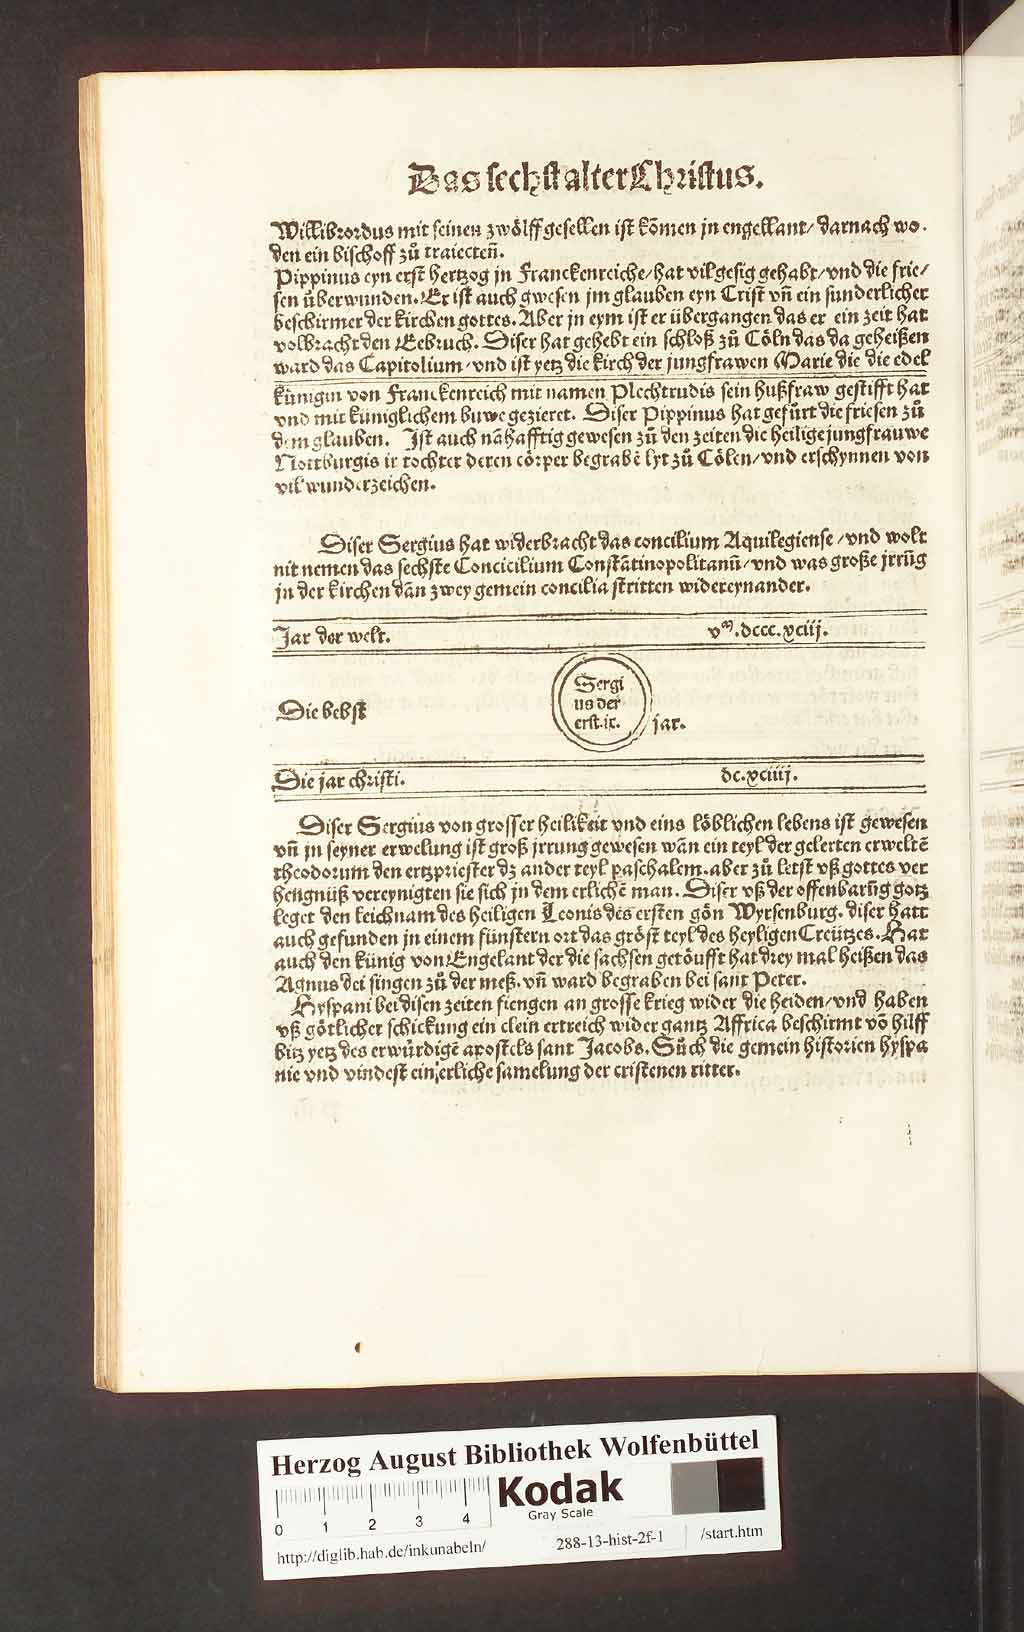 Das sechst alter Christus.
Willibrordus mit seinen zwölff gesellen ist kōmen jn engellant/ darnach wo.
den ein bischoff zů traiecteñ.
Pippinus eyn erst hertzog jn Franckenreiche/hat vil gesig gehabt/vnd die frie/
sen überwunden. Er ist auch gwesen jm glauben eyn Crist vñ ein sunderlicher
beschirmer der kirchen gottes. Aber jn eym ist er übergangen das er ein zeit hat
volbracht den Eebruch. Diser hat gehebt ein schloß zů Cöln das da geheißen
ward das Capitolium/vnd ist yetz die kirch der jungfrawen Marie die die edel
künigin von Franckenreich mit namen Plechtrudis sein hußfraw gestifft hat
vnd mit küniglichem buwe gezieret. Diser Pippinus hat gefůrt die friesen zů
dem glauben. Ist auch nāhafftig gewesen zů den zeiten die heilige jungfrauwe
Nortburgis ir tochter deren cörper begrabē lyt zů Cölen/vnd erschynnen von
vil wunderzeichen.
Diser Sergius hat widerbracht das concilium Aquilegiense/vnd wolt
nit nemen das sechste Concicilium Constātinopolitanū/vnd was große jrrūg
jn der kirchen dān zwey gemein concilia stritten widereynander.
Jar der welt. vᵐ.dccc.xciij.
Die bebst
Sergi
us der
erst.ix. jar.
Die jar christi. dc.xciiij.
Diser Sergius von grosser heilikeit vnd eins löblichen lebens ist gewesen
vñ jn seyner erwelung ist groß jrrung gewesen wān ein teyl der gelerten erweltē
theodorum den ertzpriester dz ander teyl paschalem.aber zů letst vß gottes ver
hengnüß vereynigten sie sich jn dem erlichē man. Diser vß der offenbarūg gotz
leget den leichnam des heiligen Leonis des ersten gön Wyrsenburg. diser hatt
auch gefunden jn einem fünstern ort das gröst teyl des heyligen Creützes. Hat
auch den künig von Engelant der die sachsen getöufft hat drey mal heißen das
Agnus dei singen zů der meß. vñ ward begraben bei sant Peter.
Hyspani bei disen zeiten fiengen an grosse krieg wider die heiden/vnd haben
vß götlicher schickung ein clein ertreich wider gantz Affrica beschirmt vō hilff
bitz yetz des erwürdigē apostels sant Jacobs. Sůch die gemein historien hyspa
nie vnd vindest ein erliche samelung der cristenen ritter.
Herzog August Bibliothek Wolfenbüttel
Kodak
Gray Scale
0 1 2 3 4
http://diglib.hab.de/inkunabeln/ 288-13-hist-2f-1 /start.htm